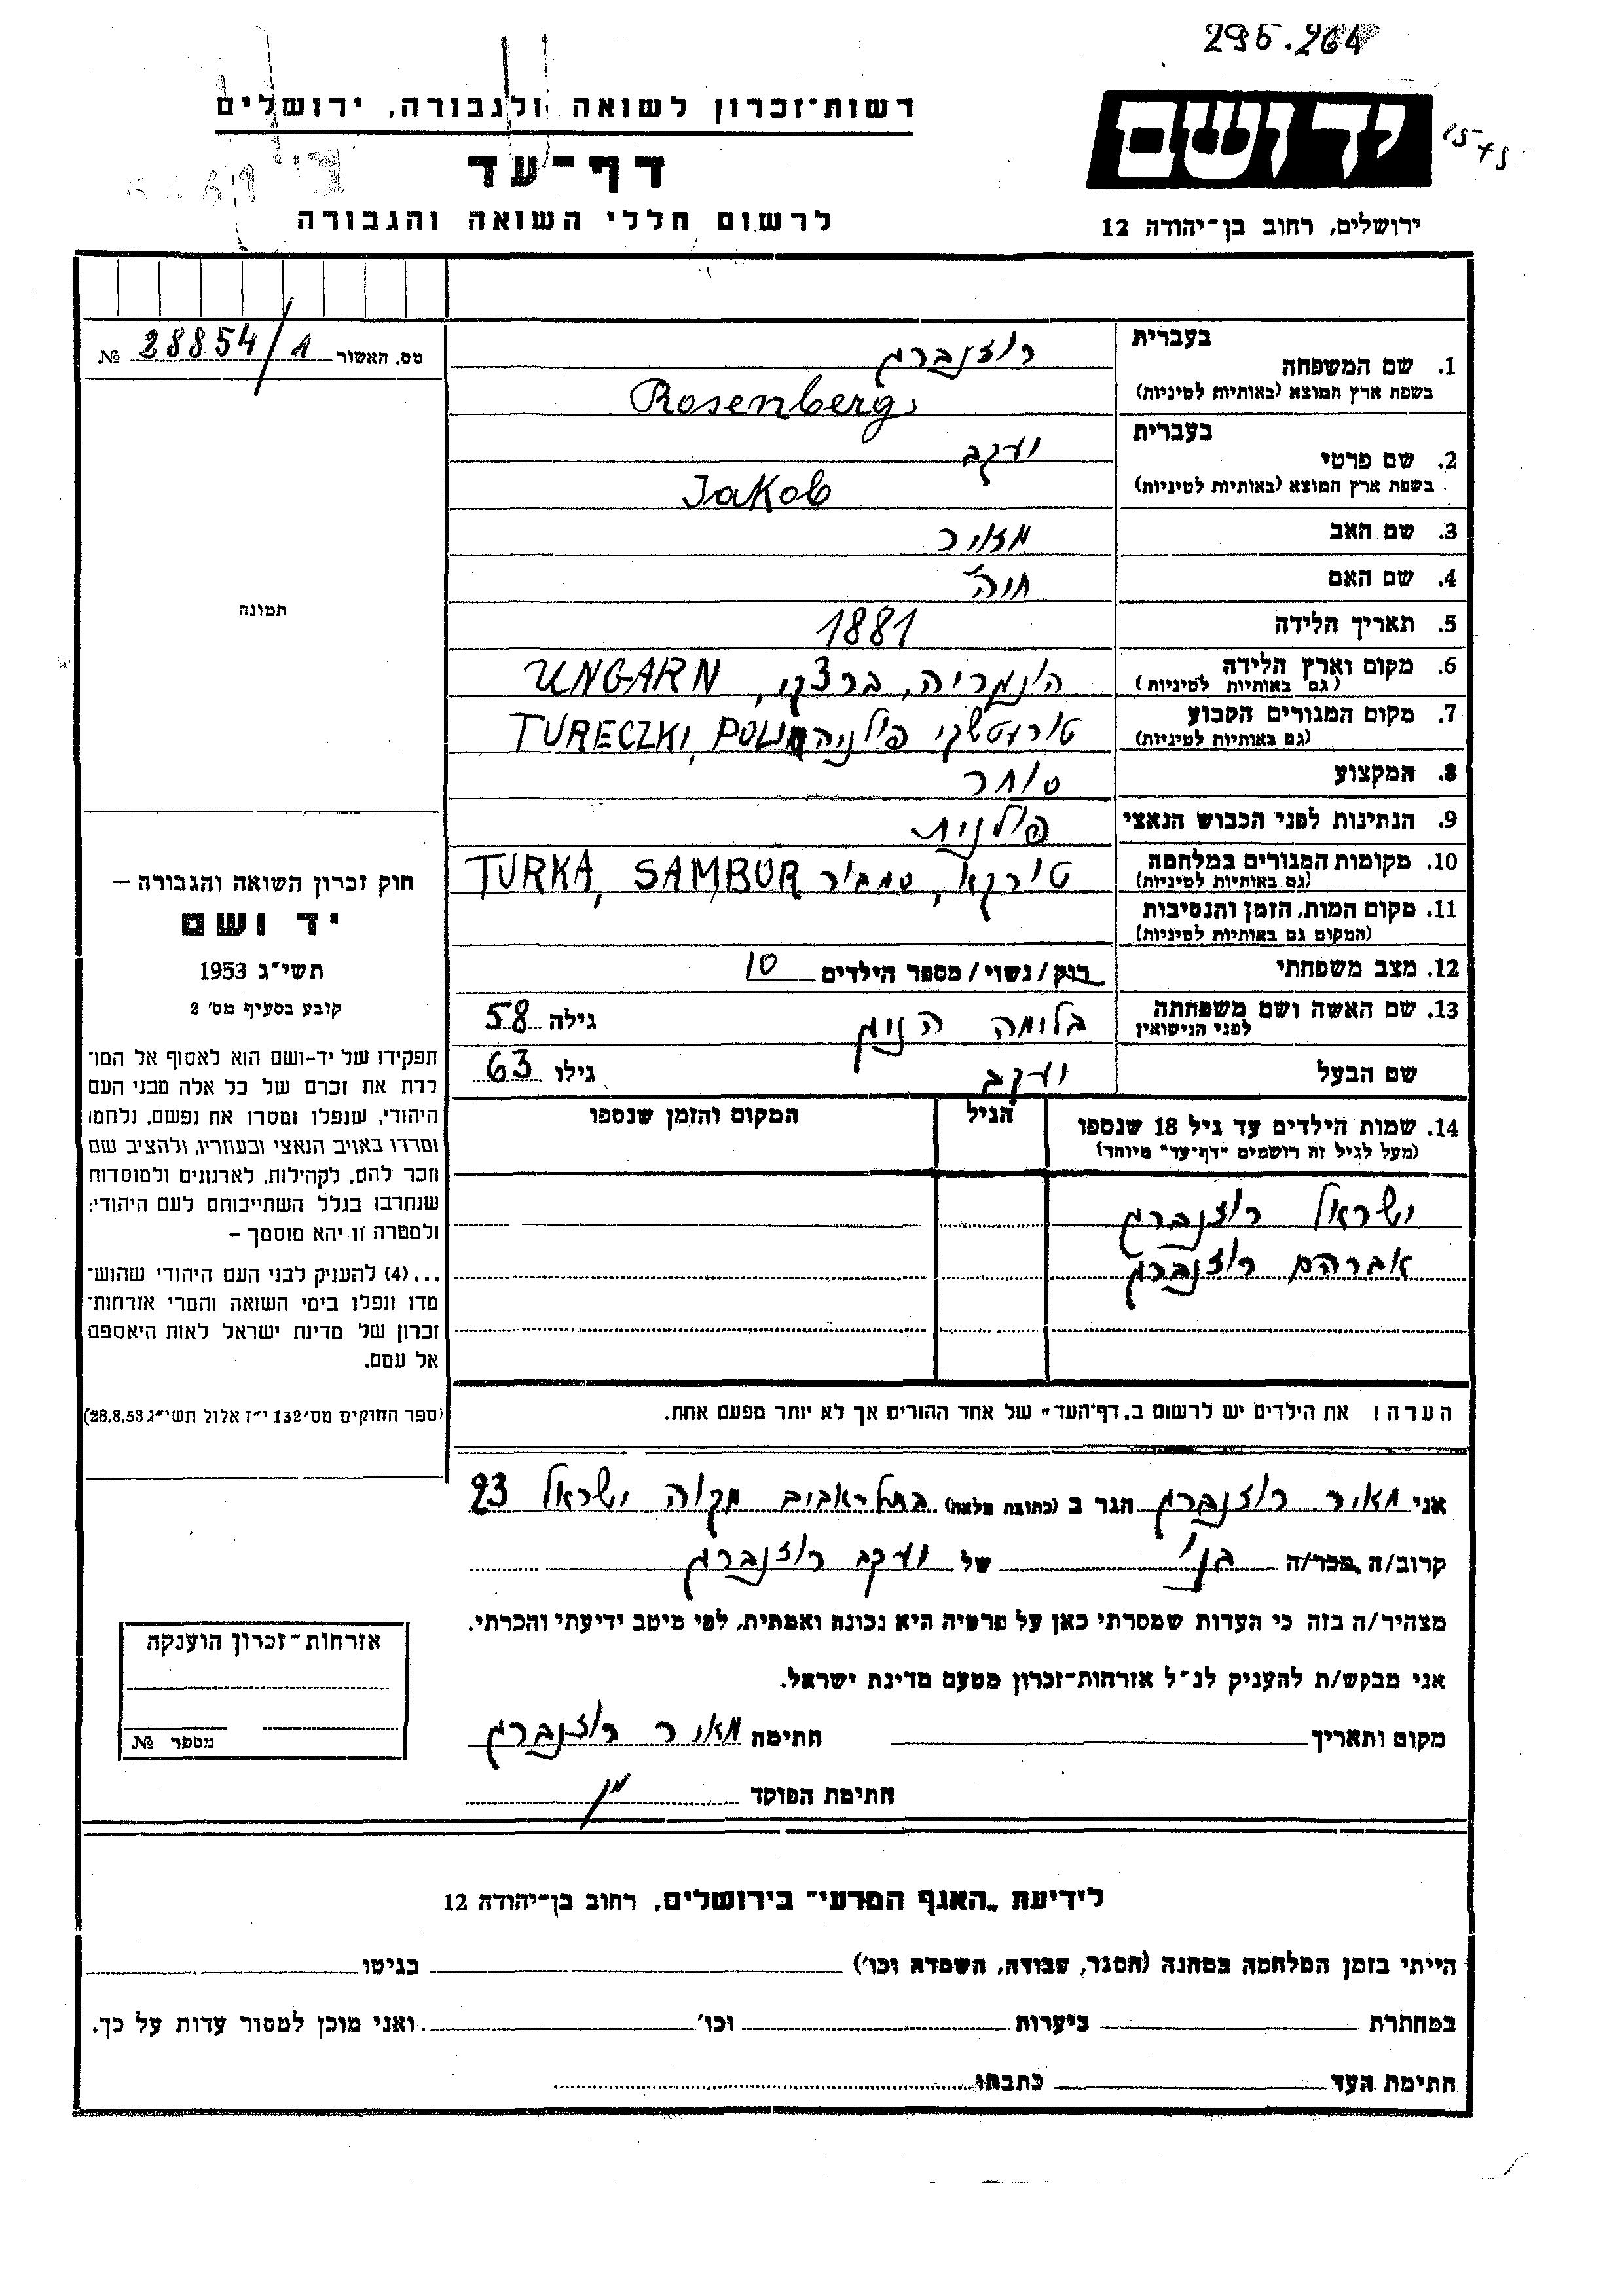 295.264
רשות־זכרון לשואה ולגבורה, ירושלים
יד ושם
דף־עד
לרשום חללי השואה והגבורה
ירושלים, רחוב בן־יהודה 12
מס. האשור 28854/1 №
בעברית
1. שם המשפחה רוזנברג
בשפת ארץ המוצא (באותיות לטיניות) Rosenberg
בעברית
2. שם פרטי יעקב
בשפת ארץ המוצא (באותיות לטיניות) Jakob
3. שם האב מאיר
4. שם האם חיה
5. תאריך הלידה 1881
6. מקום וארץ הלידה
(גם באותיות לטיניות) UNGARN
7. מקום המגורים הקבוע
(גם באותיות לטיניות) פולניה TURECZKI,
8. המקצוע סוחר
9. הנתינות לפני הכבוש הנאצי פולנית
10. מקומות המגורים במלחמה
(גם באותיות לטיניות) טורקא, סמביר TURKA, SAMBOR
11. מקום המות, הזמן והנסיבות
(המקום גם באותיות לטיניות)
12. מצב משפחתי רוק/נשוי/מספר הילדים 10
13. שם האשה ושם משפחתה
לפני הנישואין בלומה גילה 58
שם הבעל יעקב גילו 63
14. שמות הילדים עד גיל 18 שנספו הגיל המקום והזמן שנספו
(מעל לגיל זה רושמים "דף־עד" מיוחד)
ישראל רוזנברג
אברהם רוזנברג
הערה: את הילדים יש לרשום ב„דף־העד" של אחד ההורים אך לא יותר מפעם אחת.
תמונה
חוק זכרון השואה והגבורה –
יד ושם
תשי״ג 1953
קובע בסעיף מס' 2
תפקידו של יד-ושם הוא לאסוף אל המו־
לדת את זכרם של כל אלה מבני העם
היהודי, שנפלו ומסרו את נפשם, נלחמו
ומרדו באויב הנאצי ובעוזריו, ולהציב שם
וזכר להם, לקהילות, לארגונים ולמוסדות
שנחרבו בגלל השתייכותם לעם היהודי;
ולמטרה זו יהא מוסמך –
...(4) להעניק לבני העם היהודי שהוש־
מדו ונפלו בימי השואה והמרי אזרחות־
זכרון של מדינת ישראל לאות היאספם
אל עמם.
(ספר החוקים מס' 132 י״ז אלול תשי״ג 28.8.53)
אני מאיר רוזנברג הגר ב (כתובת מלאה) בתל־אביב מקוה ישראל 23
קרוב/ה מכר/ה בנו של יעקב רוזנברג
מצהיר/ה בזה כי העדות שמסרתי כאן על פרטיה היא נכונה ואמתית, לפי מיטב ידיעתי והכרתי.
אני מבקש/ת להעניק לנ״ל אזרחות־זכרון מטעם מדינת ישראל.
מקום ותאריך חתימה מאיר רוזנברג
חתימת הפוקד
אזרחות־זכרון הוענקה
מספר №
לידיעת „האגף המדעי" בירושלים, רחוב בן־יהודה 12
הייתי בזמן המלחמה במחנה (הסגר, עבודה, השמדה וכו') בגיטו
במחתרת ביערות וכו' ואני מוכן למסור עדות על כך.
חתימת העד כתבתו